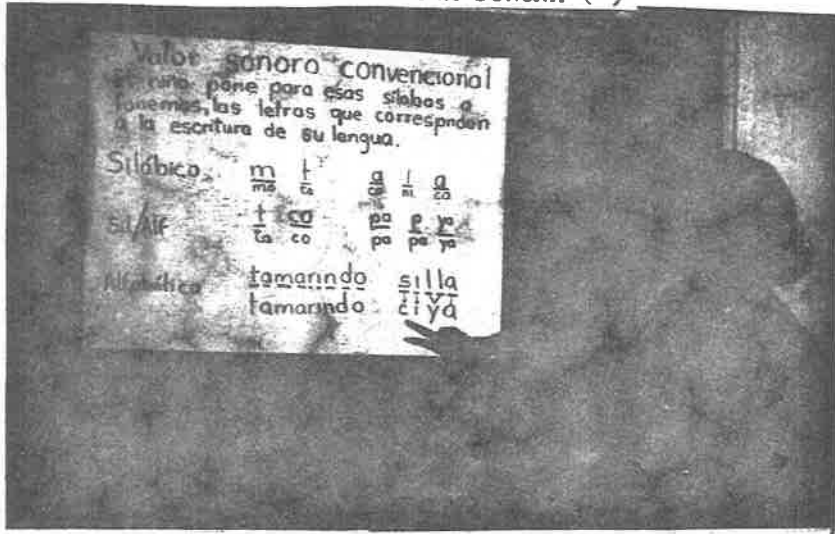 Valor sonoro convencional
El niño pone para esas sílabas o
fonemas, las letras que correspnden
a la escritura de su lengua.
Silábico. m t a i a
ma ta ca ni ca
Sil/Alf t co pa p ya
ta co pa pa ya
Alfabético tamarindo silla
tamarindo ciya